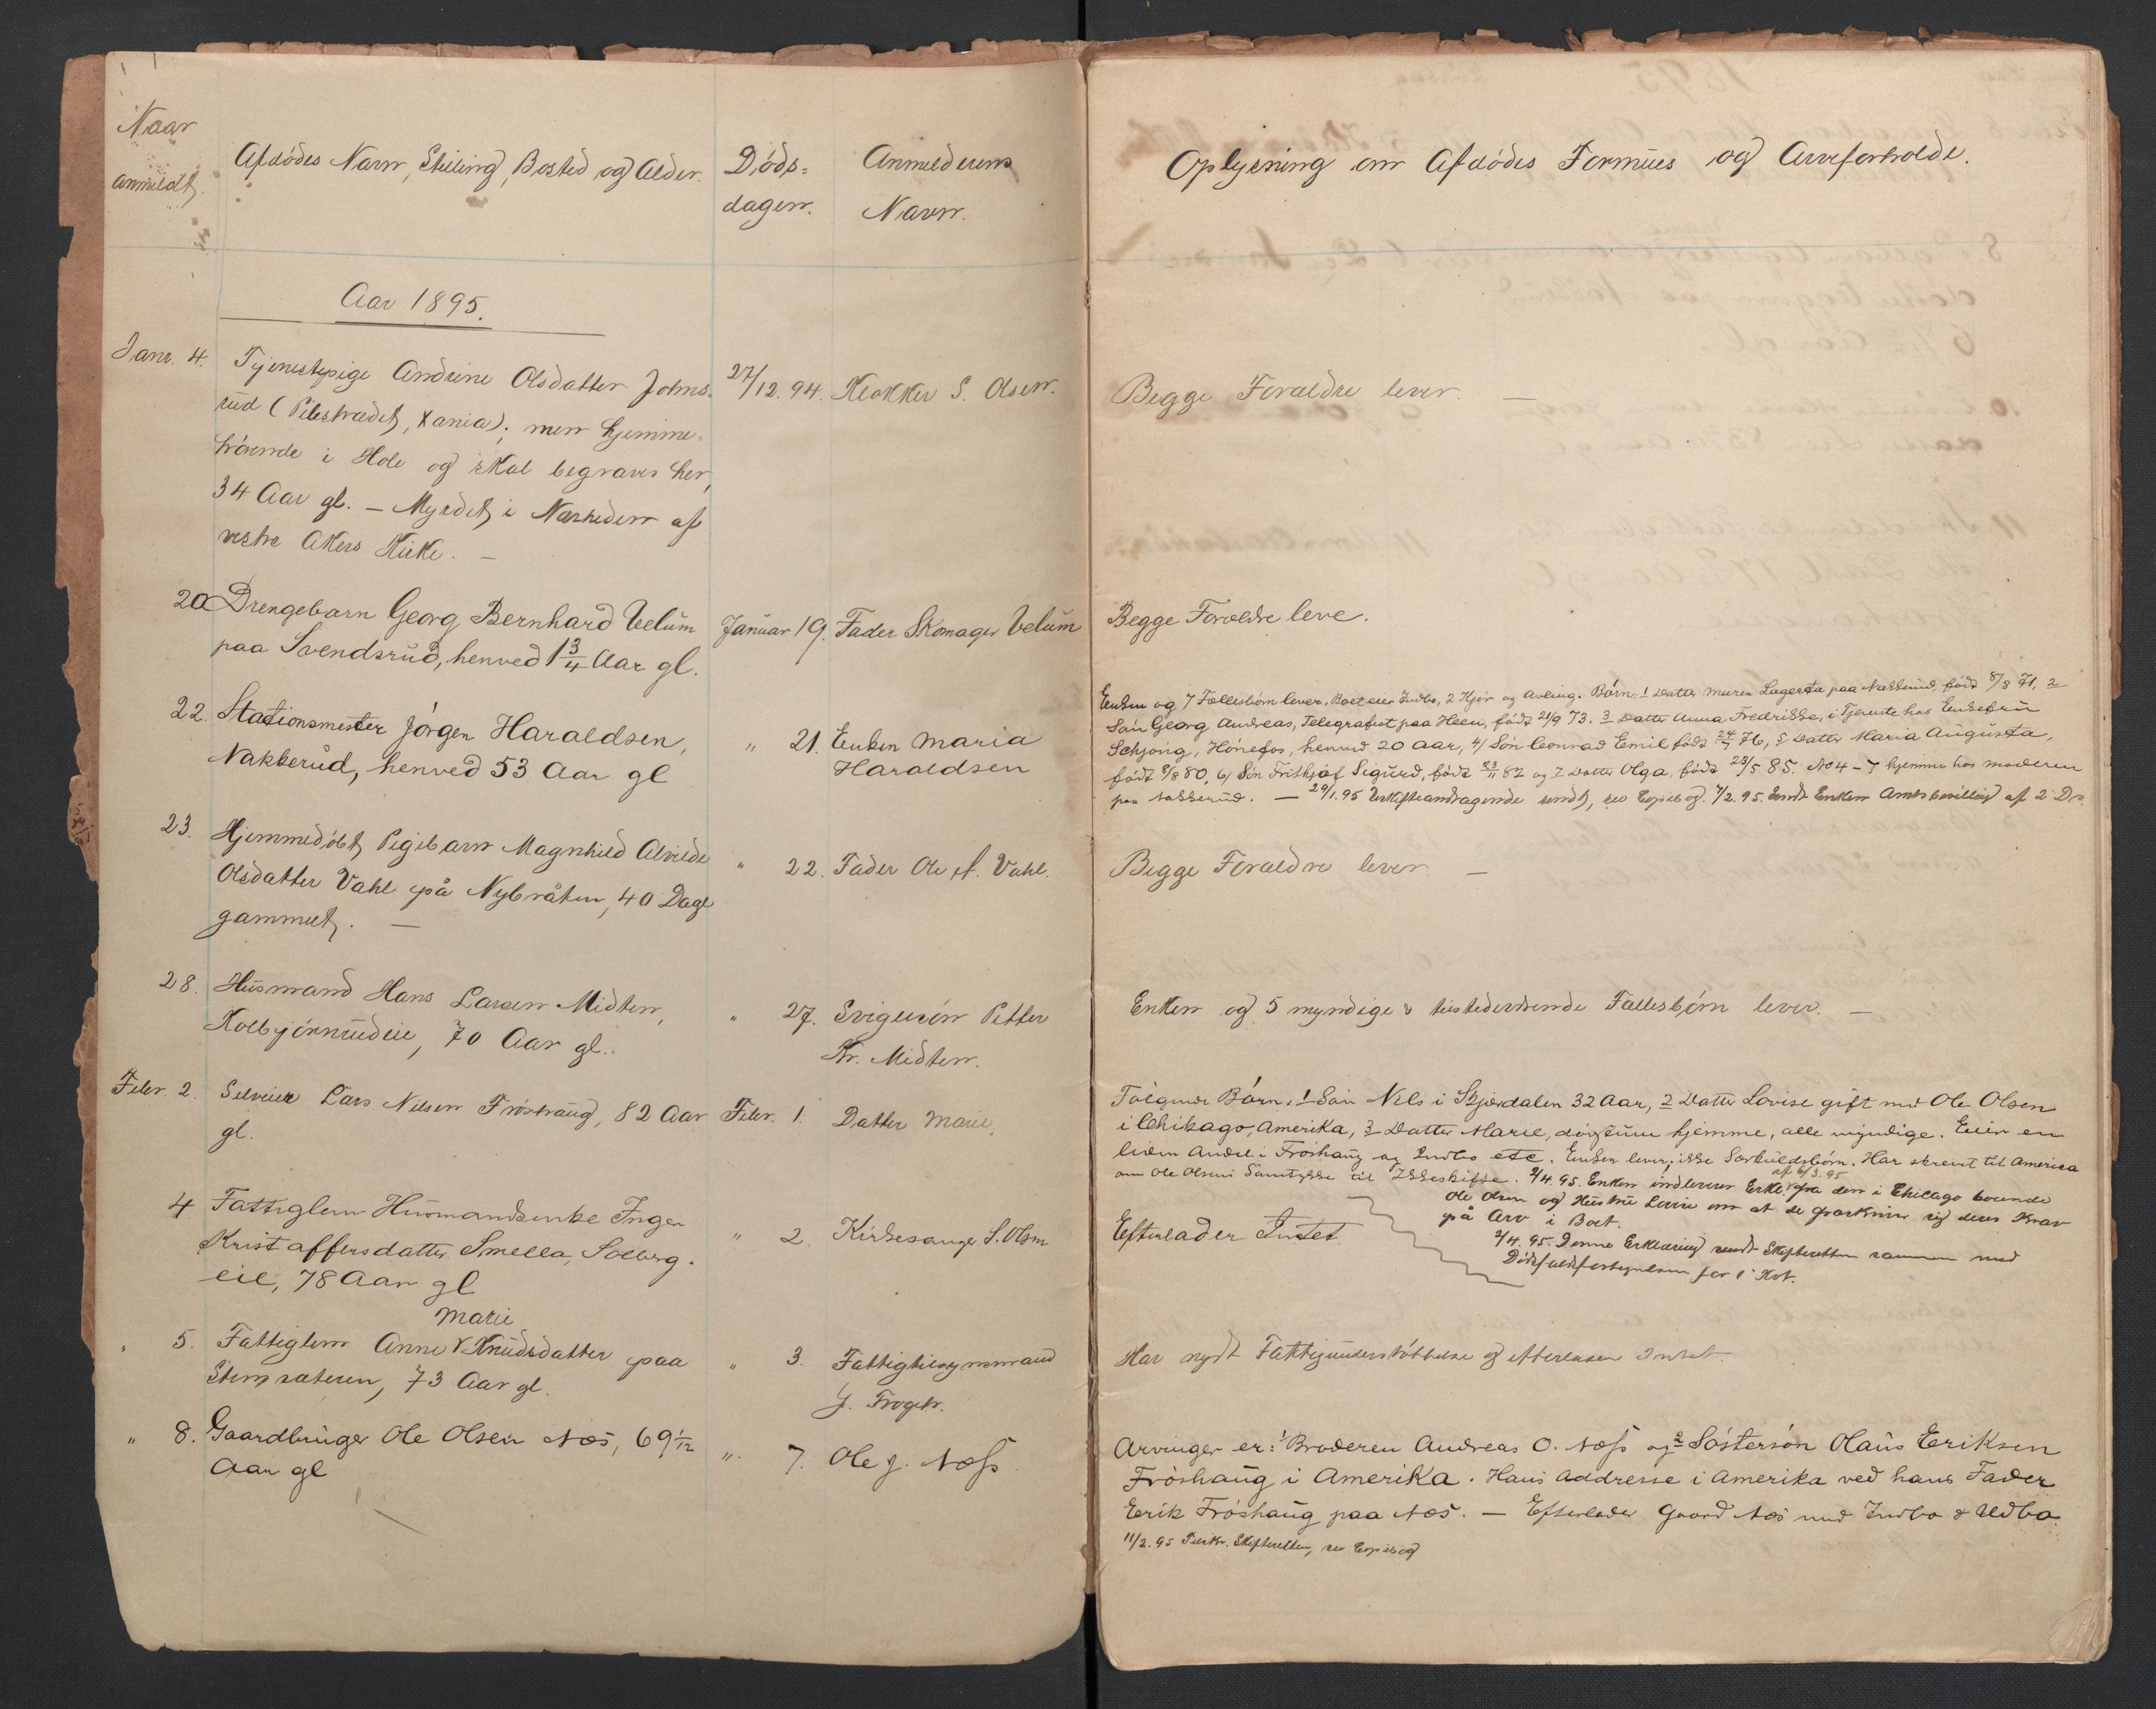 Naar
anmeldt.
Afdødes Navn, Stilling, Bosted og Alder.
Døds-
dagen.
Anmelderens
Navn.
Oplysning om Afdødes Formues og Arveforholde.
Aar 1895.
Janr. 4. Tjenestepige Andrine Olsdatter Johns- 27/12. 94. Klokker S. Olsen. Begge Forældre lever. —
rud (Pilestrædet, Xania); men hjemme-
hørende i Hole og skal begraves her,
34 Aar gl. — Myrdet i Nærheden af
vestre Akers Kirke. —
20 Drengebarn Georg Bernhard Velum Januar 19. Fader Skomager Velum Begge Forældre leve.
paa Svendsrud, henved 1 3/4 Aar gl.
22. Stationsmester Jørgen Haraldsen, " 21. Enken Maria
Nakkerud, henved 53 Aar gl Haraldsen
Enken og 7 Fællesbørn lever. Boet eier Indbo, 2 Kjør og Avling. Børn: 1 Datter Maren Lagerta paa Nakkerud, født 8/8 71, 2
Søn Georg Andreas, Telegrafist paa Heen, født 21/9 73. 3 Datter Anna Fredrikke, i Tjeneste hos Enkefru
Schjong, Hønefos, henved 20 Aar, 4/ Søn Conrad Emil født 24/7 76, 5 Datter Maria Augusta,
født 8/8 80, 6/ Søn Frithjof Sigurd, født 23/11 82 og 7 Datter Olga, født 23/5 85. No 4-7 hjemme hos moderen
paa Nakkerud. — 29/1.95 sendt, se Copibog. 7/2.95. Sendt Enken Amtsbevilling af 2 Ds.
23. Hjemmedøbt Pigebarn Magnhild Alvilde " 22. Fader Ole A. Vahl. Begge Forældre lever. —
Olsdatter Vahl på Nybråten, 40 Dage
gammelt. —
28. Husmand Hans Larsen Midten, " 27. Svigersøn Petter Enken og 5 myndige & tilstedeværende Fællesbørn lever. —
Kolbjørnrudeie, 70 Aar gl.. Kr. Midten.
Febr. 2. Selveier Lars Nilsen Frøshaug, 82 Aar Febr. 1. Datter Marie.
gl.
Følgende Børn: 1 Søn Nils i Stjørdalen 32 Aar, 2 Datter Lovise gift med Ole Olsen
i Chikago, Amerika, 3 Datter Marie, hjemme, alle myndige. Eier en
liden Andel i Frøshaug og Indbo etc. Enken lever, ikke Særkuldsbørn. Har skrevet til America
om Ole Olsens Samtykke til Ikkeskifte. 2/4.95. Enken indleverer Erkl. af 6/3.95 fra den i Chicago boende
Ole Olsen og Hustru Lovise om at de frasiger sig deres Krav
på Arv i Boet.
2/4.95. Denne Erklæring sendt Skifteretten sammen med
Dødsfaldsfortegnelsen for 1 Kvt.
4 Fattiglem Husmandsenke Inger " 2. Kirkesanger S. Olsen Efterlader Intet.
Kristoffersdatter Smella, Solberg-
eie, 78 Aar gl
Marie
" 5. Fattiglem Anne Knudsdatter paa " 3. Fattigtilsynsmand Har nydt Fattigunderstøttelse og efterlader Intet.
Stensæteren, 73 Aar gl. G. Frogn.
" 8. Gaardbruger Ole Olsen Næs, 69 1/12 " 7. Ole J. Næss
Aar gl
Arvinger er: 1 Broderen Andreas O. Næss og 2 Søstersøn Olaus Eriksen
Frøshaug i Amerika. Hans Addresse i Amerika ved hans Fader
Erik Frøshaug paa Næs. — Efterlader Gaard Næs med Indbo & Udbo.
11/2.95 Skifteretten, se Copibog